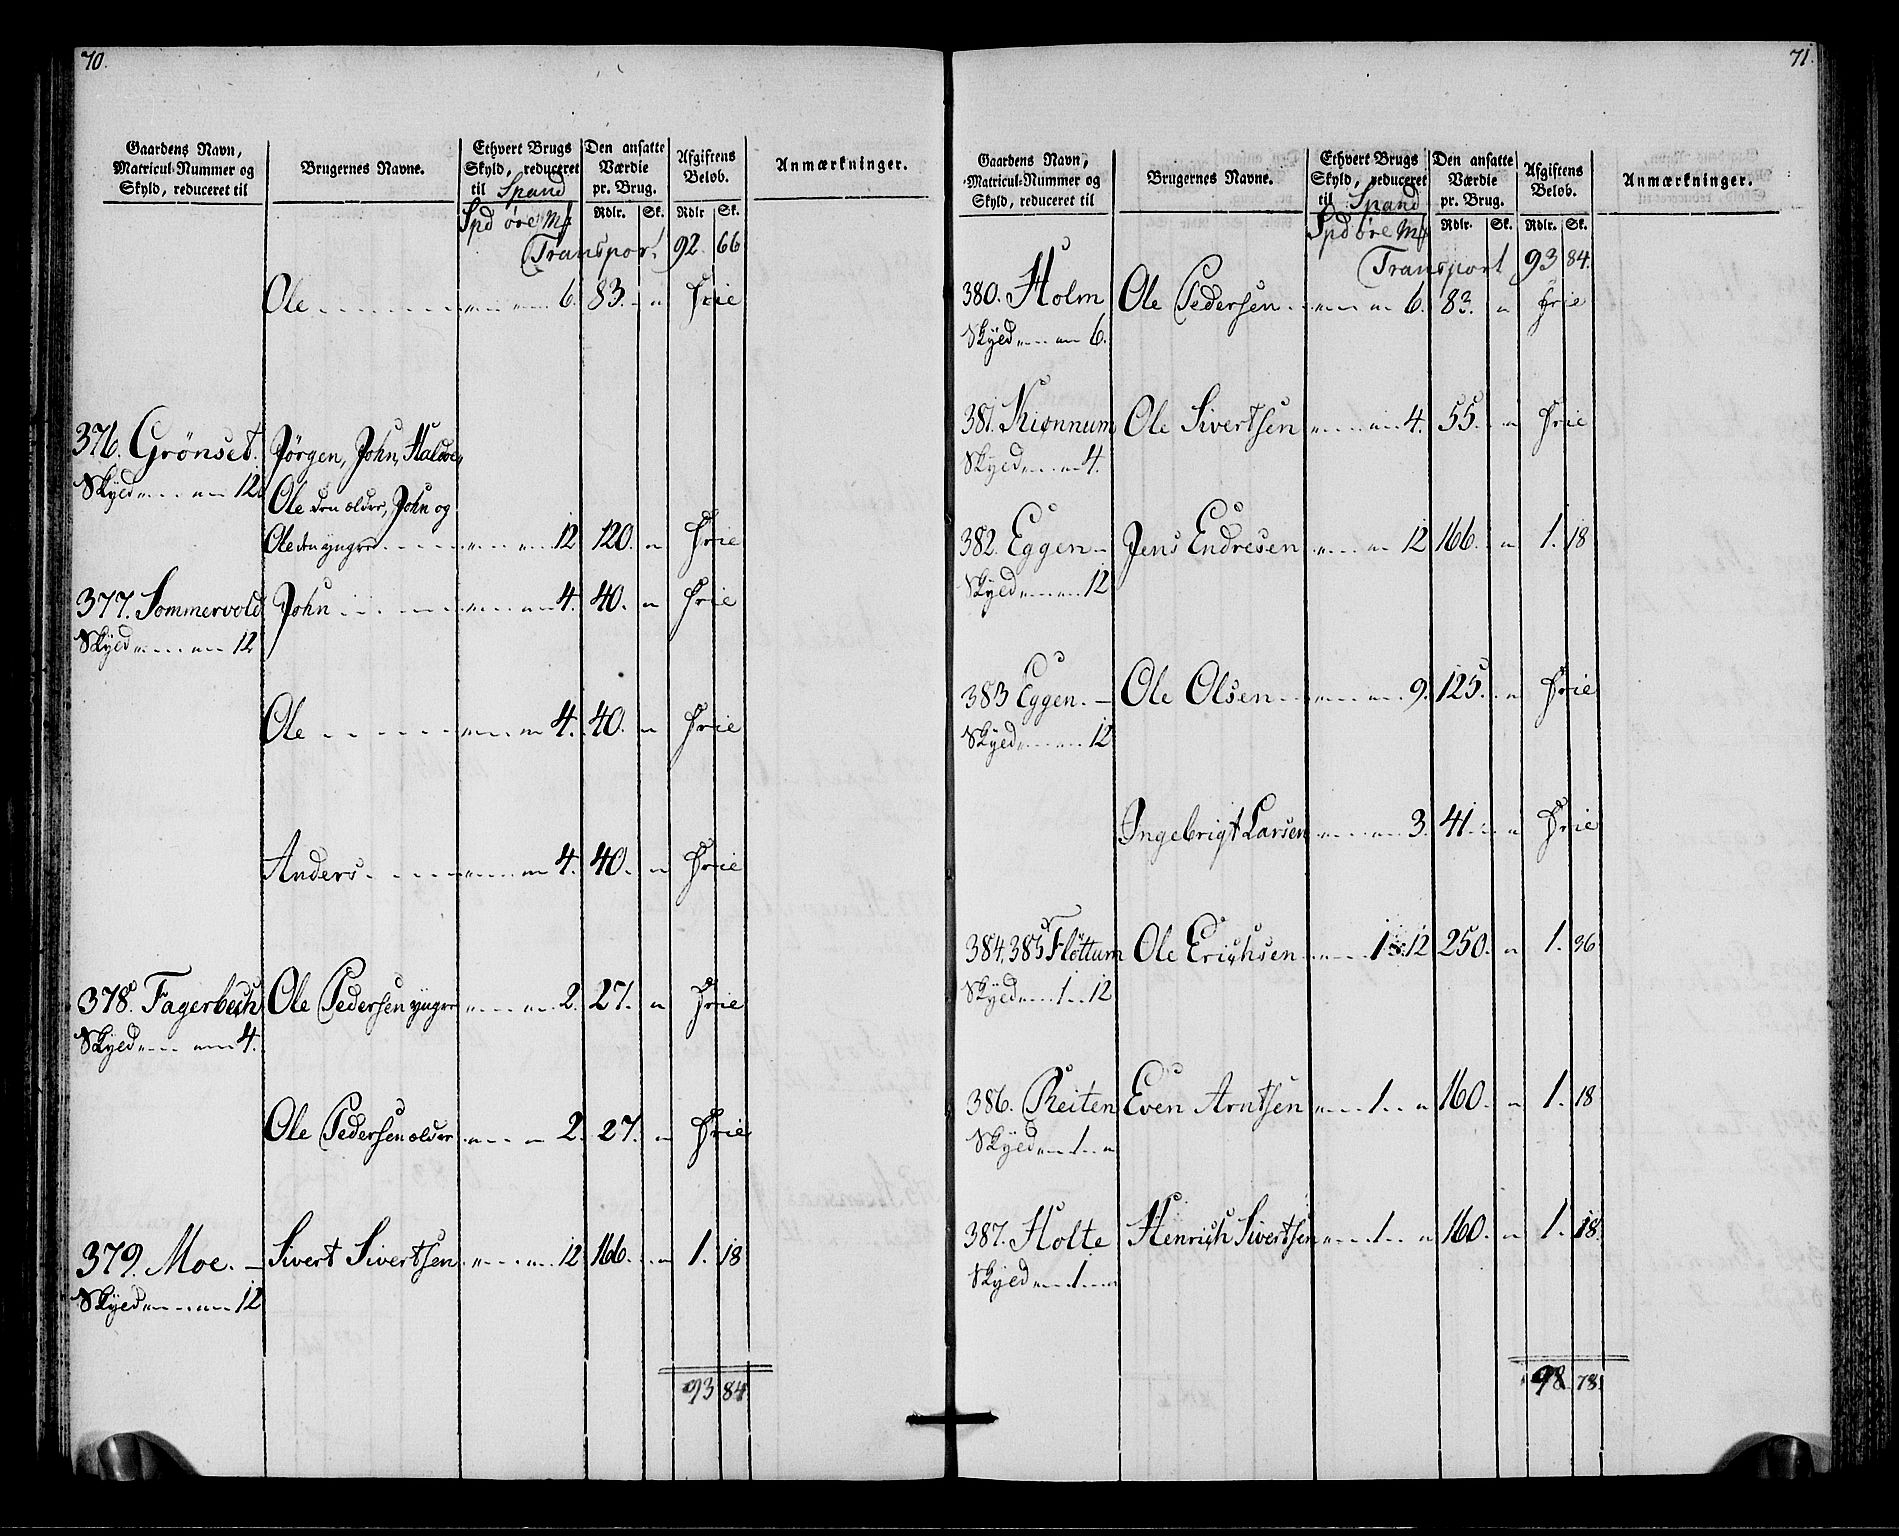 70.
Gaardens Navn, Matricul-Nummer og Skyld, reduceret til | Brugernes Navne. | Ethvert Brugs Skyld, reduceret til Spand | Den ansatte Værdie pr. Brug. | Afgiftens Beløb. | Anmærkninger.
Spd øre Mk | Rdlr. | Sk. | Rdlr | Sk.
Transport 92. 66
Ole 6. 83. " frie
376. Grönset. Jørgen, John, Halvor,
Skyld 12. Ole den ældre, John og
Ole den yngre 12 120. " frie
377. Sommervold John 4. 40. " frie
Skyld 12
Ole 4. 40. " frie
Anders 4. 40. " frie
378. Fagerbech Ole Pedersen yngre 2. 27. " frie
Skyld 4.
Ole Pedersen ældre 2. 27. " frie
379. Moe. Sivert Sivertsen 12 166. " 1. 18
Skyld 12
93 84
71.
Gaardens Navn, Matricul-Nummer og Skyld, reduceret til | Brugernes Navne. | Ethvert Brugs Skyld, reduceret til Spand | Den ansatte Værdie pr. Brug. | Afgiftens Beløb. | Anmærkninger.
Spd øre Mk | Rdlr. | Sk. | Rdlr. | Sk.
Transport 93 84.
380. Holm Ole Pedersen 6. 83. " frie
Skyld 6.
381. Kiønnum Ole Sivertsen 4. 55. " frie
Skyld 4.
382. Eggen Jens Endresen 12 166. " 1. 18
Skyld 12
383 Eggen. Ole Olsen 9. 125. " frie
Skyld 12
Ingebrigt Larsen 3. 41. " frie
384, 385 Fløttum Ole Erichsen 1. 12 250. " 1. 36
Skyld 1. 12
386. Reiten Even Arntsen 1. " 160. " 1. 18
Skyld 1. "
387. Holte Henrich Sivertsen 1. " 160. " 1. 18.
Skyld 1. "
98. 78.